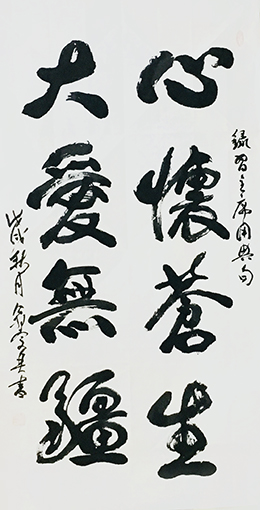 錄習主席用典句
心懷蒼生
大愛無疆
戊戌秋月
書